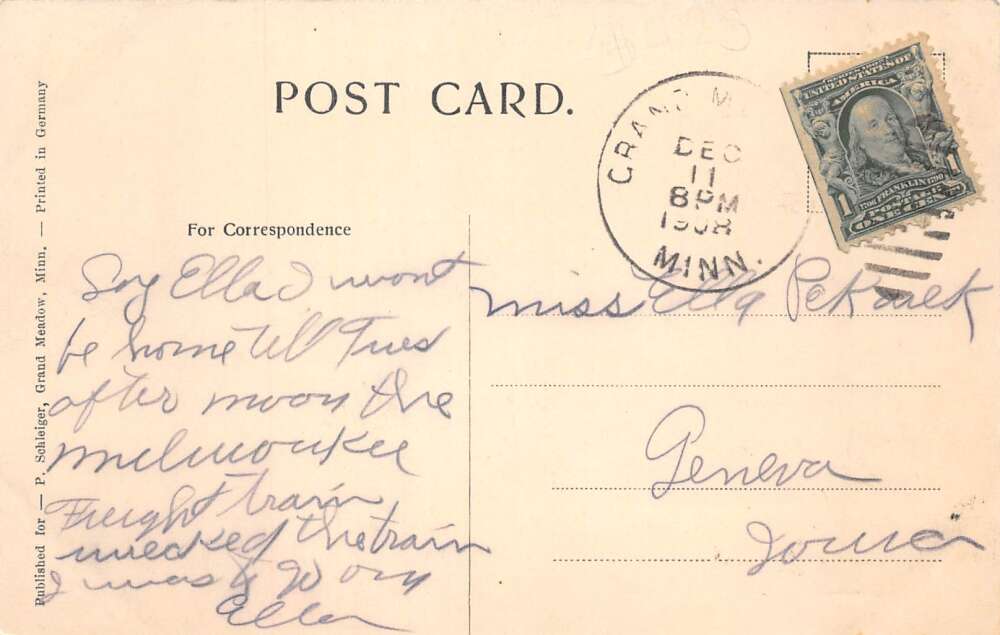 POST CARD.
GRAND M
DEC
11
8 PM
1908
MINN.
SERIES 1902
UNITED STATES OF
AMERICA
1706 FRANKLIN 1790
1 POSTAGE 1
ONE CENT
Published for — P. Schleiger, Grand Meadow, Minn. — Printed in Germany
For Correspondence
Say Ella I wont
be home till Tues
after noon the
Milwaukee
Freight train
wrecked the train
I was to go on
Ella
Miss Ella Pekarek
Geneva
Iowa